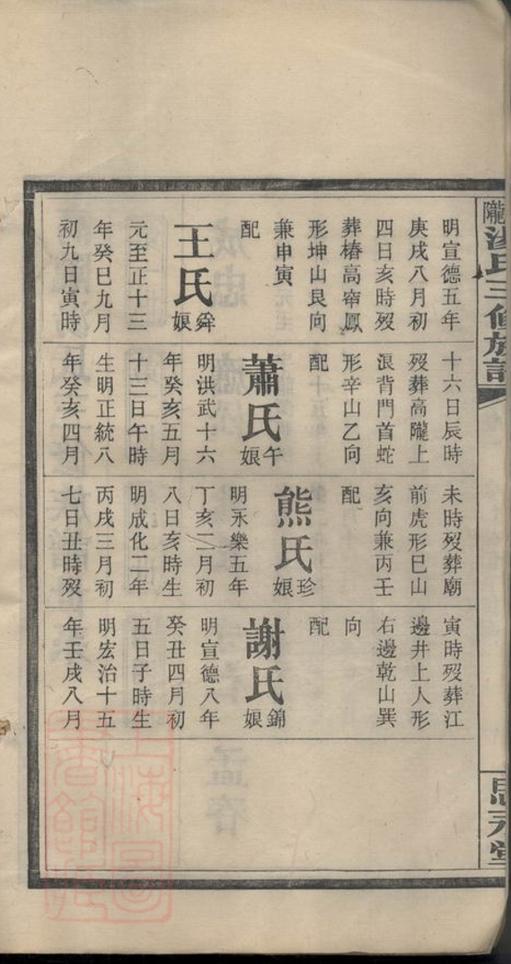 明宣德五年
庚戌八月初
四日亥時歿
葬椿高窄鳳
形坤山艮向
兼申寅
配
王氏舜娘
元至正十三
年癸巳九月
初九日寅時
十六日辰時
歿葬高隴上
浪背門首蛇
形辛山乙向
配
蕭氏午娘
明洪武十六
年癸亥五月
十三日午時
生明正統八
年癸亥四月
未時歿葬廟
前虎形巳山
亥向兼丙壬
配
熊氏珍娘
明永樂五年
丁亥二月初
八日亥時生
明成化二年
丙戌三月初
七日丑時歿
寅時歿葬江
邊井上人形
右邊乾山巽
向
配
謝氏錦娘
明宣德八年
癸丑四月初
五日子時生
明宏治十五
年壬戌八月
氏三修族譜
思元堂
上海圖書館藏